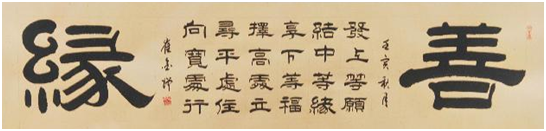 善
壬寅秋月
發上等願
結中等緣
享下等福
擇高處立
尋平處住
向寬處行
崔
緣